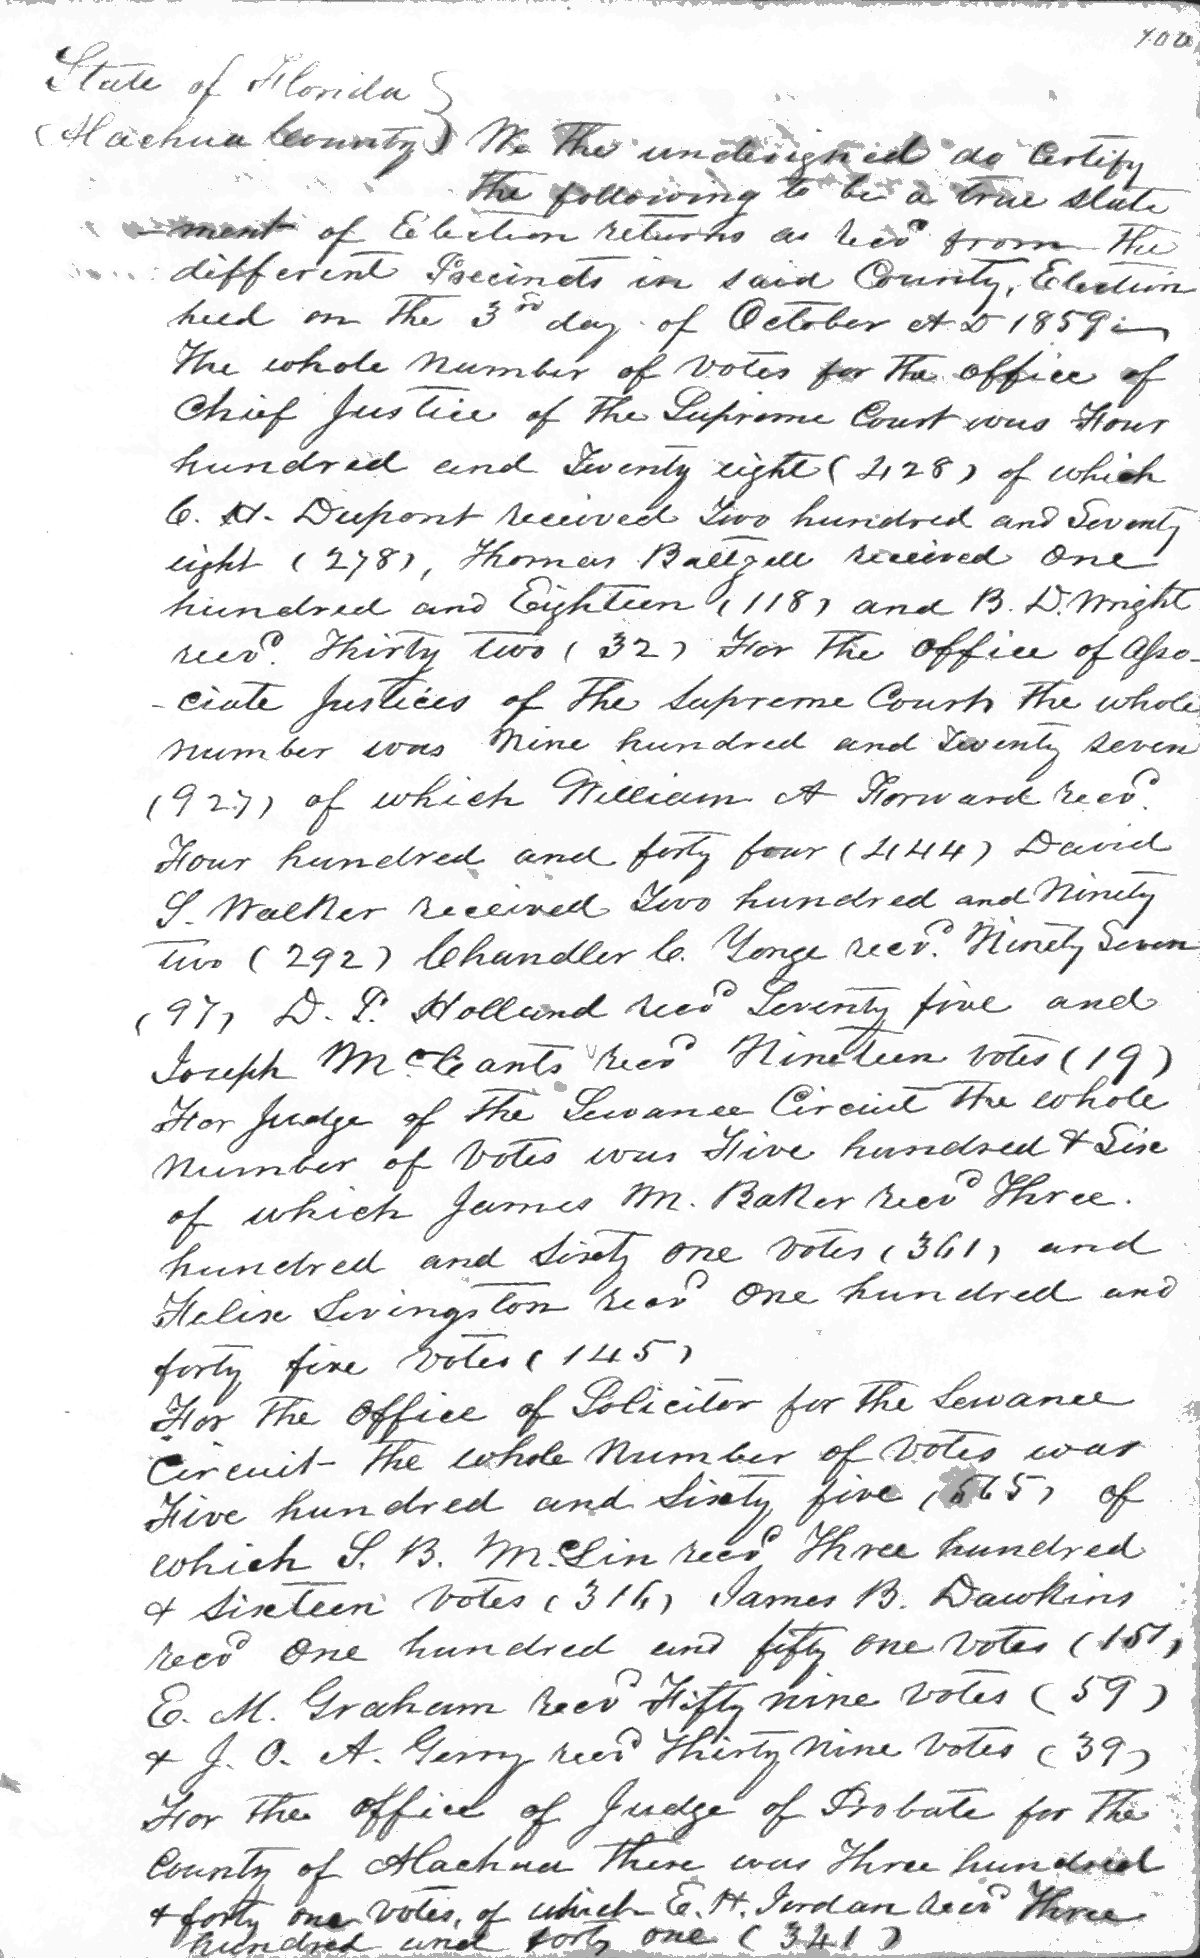 100
State of Florida }
Alachua County } We the undersigned do Certify
the following to be a true state
-ment of Election returns as recd from the
different Precincts in said County, Election
held on the 3rd day of October A D 1859
The whole number of votes for the office of
Chief Justice of the Supreme Court was Four
hundred and Twenty eight (428) of which
C. H. Dupont received Two hundred and Seventy
eight (278), Thomas Baltzell received One
hundred and Eighteen (118) and B. D. Wright
recd. Thirty two (32) For the office of Asso-
-ciate Justices of the Supreme Court the whole
number was Nine hundred and Twenty seven
(927) of which William A Forward recd.
Four hundred and forty four (444) David
S. Walker received Two hundred and Ninety
two (292) Chandler C. Yonge recd. Ninety Seven
(97) D. P. Holland recd Seventy five and
Joseph McCants recd Nineteen votes (19)
For Judge of the Suwanee Circuit the whole
number of votes was Five hundred & Six
of which James M. Baker recd Three
hundred and Sixty one votes (361) and
Felix Livingston recd One hundred and
forty five votes (145)
For the office of Solicitor for the Suwanee
Circuit the whole number of votes was
Five hundred and Sixty five (565) of
which S. B. McLin recd Three hundred
& Sixteen votes (316) James B. Dawkins
recd One hundred and fifty one votes (151)
E. M. Graham recd Fifty nine votes (59)
& J. O. A. Gerry recd Thirty nine votes (39)
For the office of Judge of Probate for the
County of Alachua there was Three hundred
& forty one votes, of which E. H. Jordan recd Three
hundred and forty one (341)